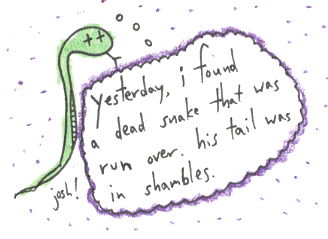 yesterday, i found
a dead snake that was
run over. his tail was
in shambles.
josh!